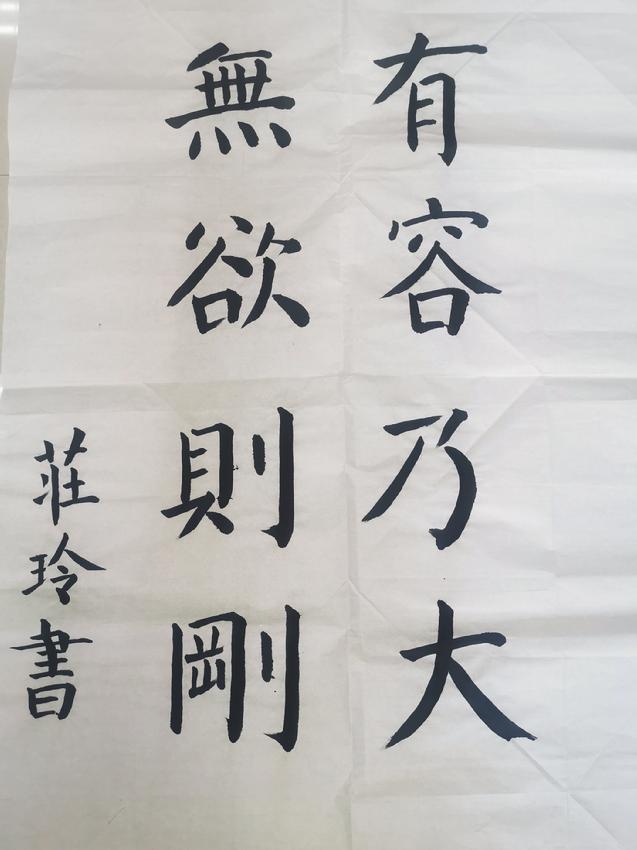 有容乃大
無欲則剛
莊玲書